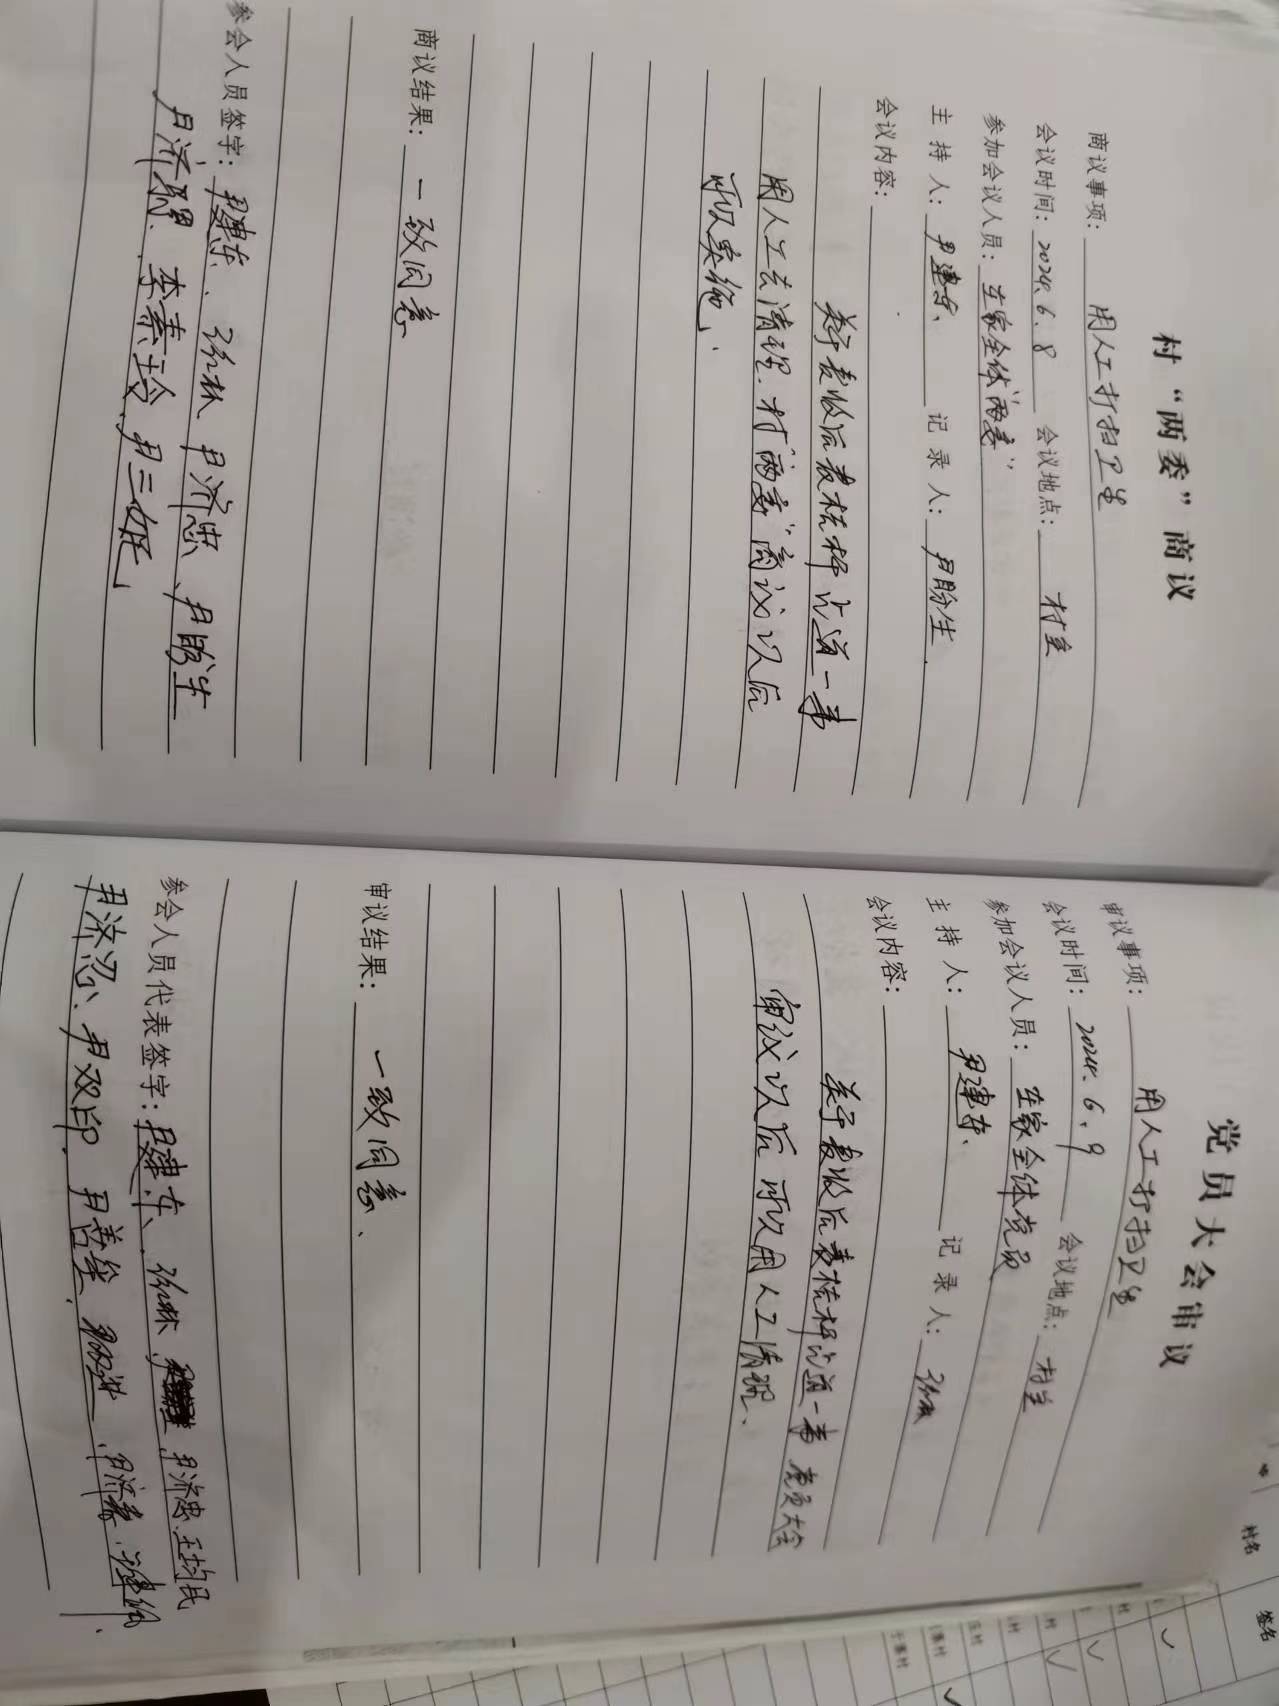 村“两委”商议
商议事项：用人工打扫卫生
会议时间：2024.6.8 会议地点：村室
参加会议人员：在家全体“两委”
主持人：尹建东、记录人：尹盼生
会议内容：
关于麦收后麦秸秆沿道一事
用人工去清理.村“两委”商议以后
所以实施、
商议结果：一致同意
参会人员签字：尹建东、张林、尹济忠、尹盼生
尹济聚、李素玲、尹三妮、
党员大会审议
审议事项：用人工打扫卫生
会议时间：2024.6.9 会议地点：村室
参加会议人员：在家全体党员
主持人：尹建东、记录人：张林
会议内容：
关于麦收后麦秸秆沿道一事 党员大会
审议以后所以用人工清理、
审议结果：一致同意、
参会人员代表签字：尹建东、张林、尹济忠、王均民
尹济忍、尹双印、尹善
村名
签名